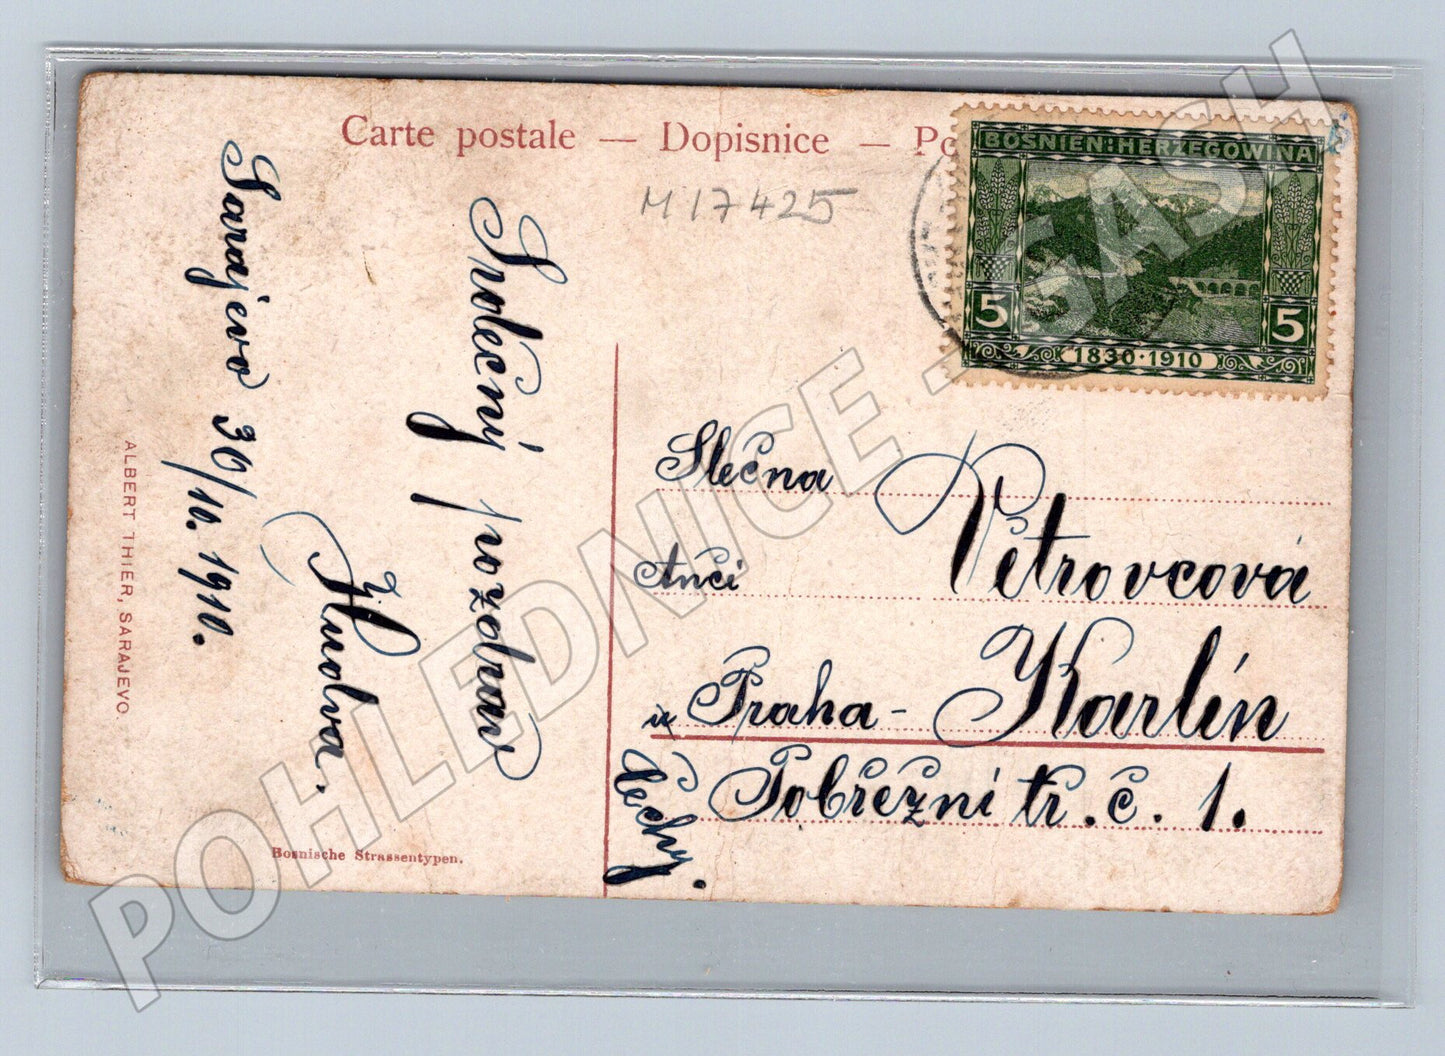 Carte postale — Dopisnice —
M17425
BOSNIEN·HERZEGOWINA
5 5
1830·1910
Sarajevo 30/10. 1910.
Srdečný pozdrav
ALBERT THIER, SARAJEVO.
Bosnische Strassentypen.
Slečna
Anči Petrovcová
Praha - Karlín
Pobřežní tř. č. 1.
Čechy.
POHLEDNICE - SASH